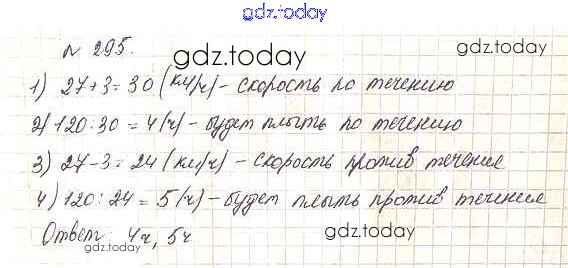 gdz.today
№ 295.
gdz.today
1) 27+3=30 (км/ч) - скорость по течению
2) 120:30=4 (ч) - будет плыть по течению
3) 27-3=24 (км/ч) - скорость против течение
4) 120:24=5 (ч) - будет плыть против течение
Ответ: 4ч, 5ч
gdz.today
gdz.today